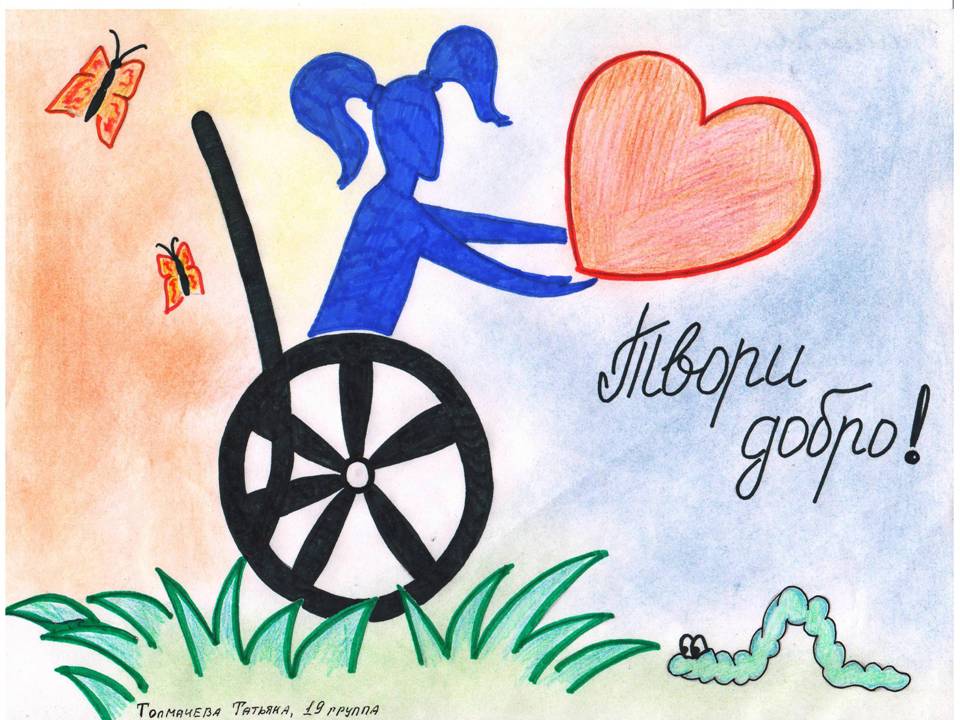 Твори
добро!
Толмачева Татьяна, 19 группа